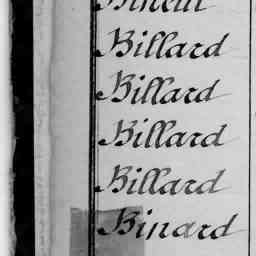 Billard
Billard
Billard
Billard
Binard